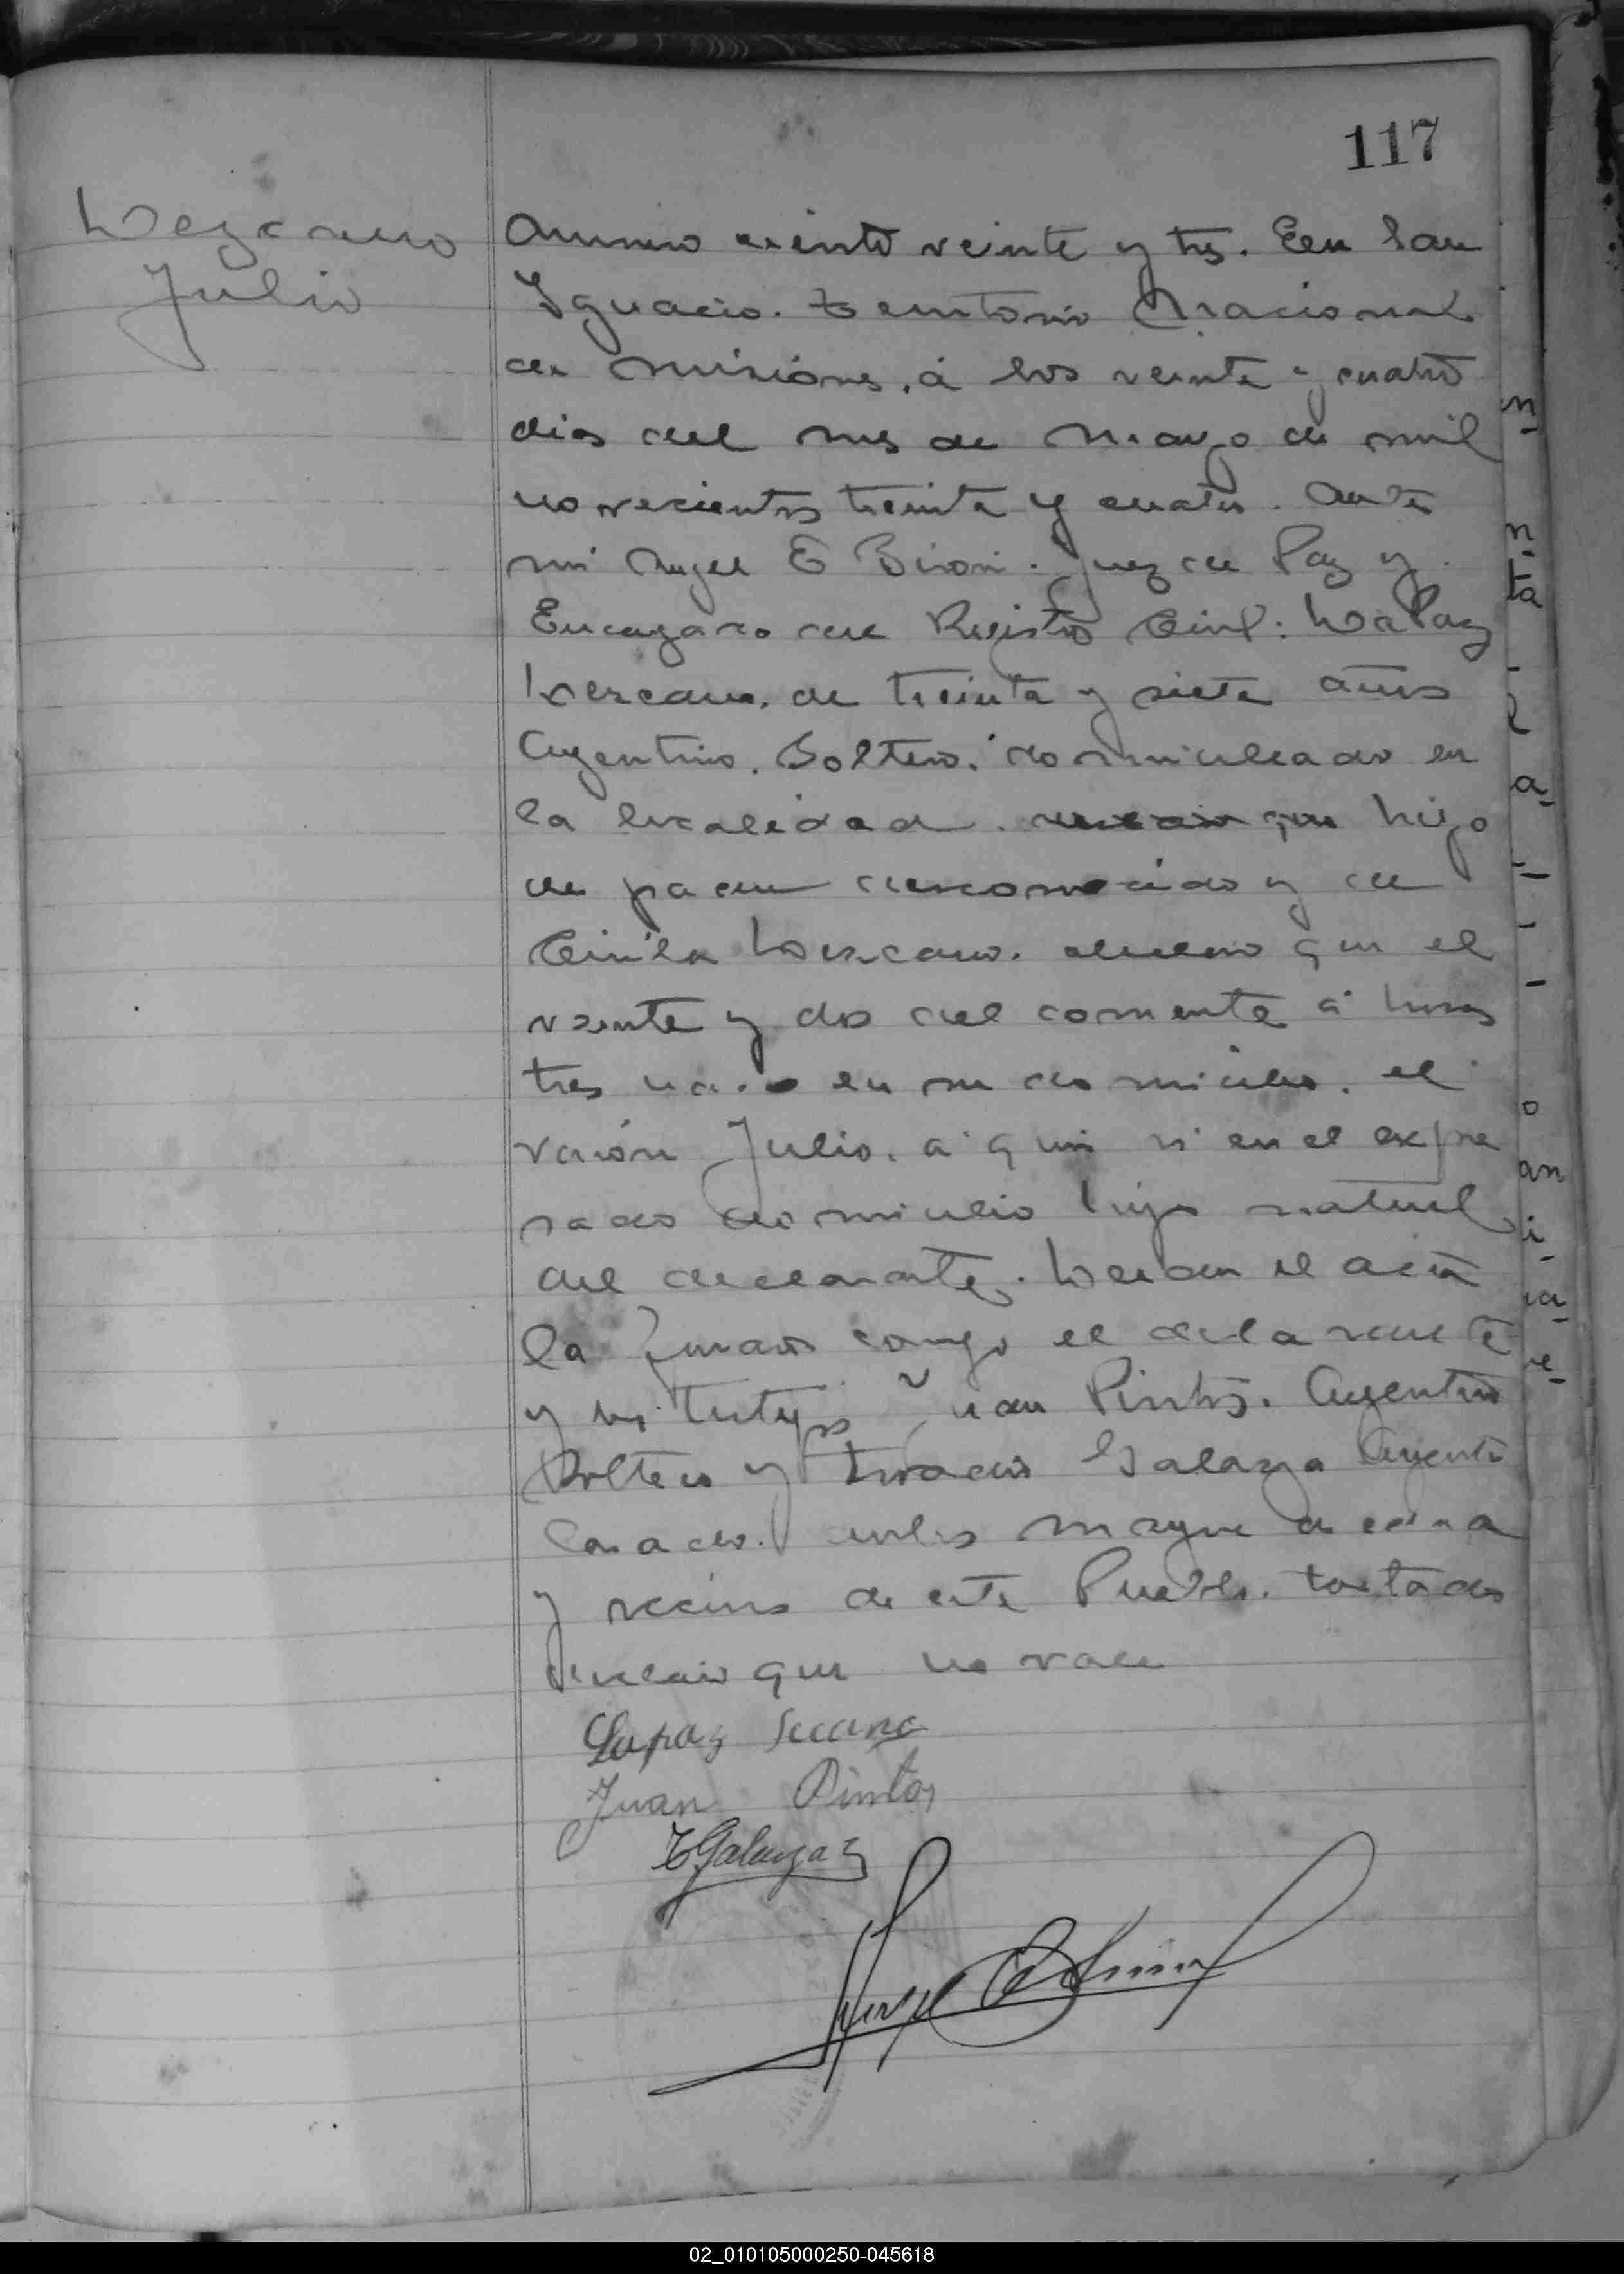 117
Lezcano
Julio
Numero ciento veinte y tres. En San
Ignacio. Territorio Nacional
de Misiones, á los veinte y cuatro
dias del mes de Mayo de mil
novecientos treinta y cuatro. Ante
mi Angel E Biron. Juez de Paz y
Encargado del Registro Civil: La Paz
Lezcano, de treinta y siete años
Argentino. Soltero. domiciliado en
la localidad. declaro que hijo
de padre desconocido y de
Lezcano. declaro que el
veinte y dos del corriente á horas
tres nacio en su domicilio. el
varón Julio. a quien vi en el expre
sado domicilio hijo natural
del declarante. Leida el acta
la firmaron conmigo el declarante
y los testigos Juan Pintos. Argentino
Soltero y Galarza Argentino
Casado. ambos mayores de edad
y vecinos de este Pueblo. testado
declaro que no vale
Lapaz Lecano
Juan Pintos
T Galarza
n-
n-
ta
a-
o
an
i-
ia-
e-
02_010105000250-045618